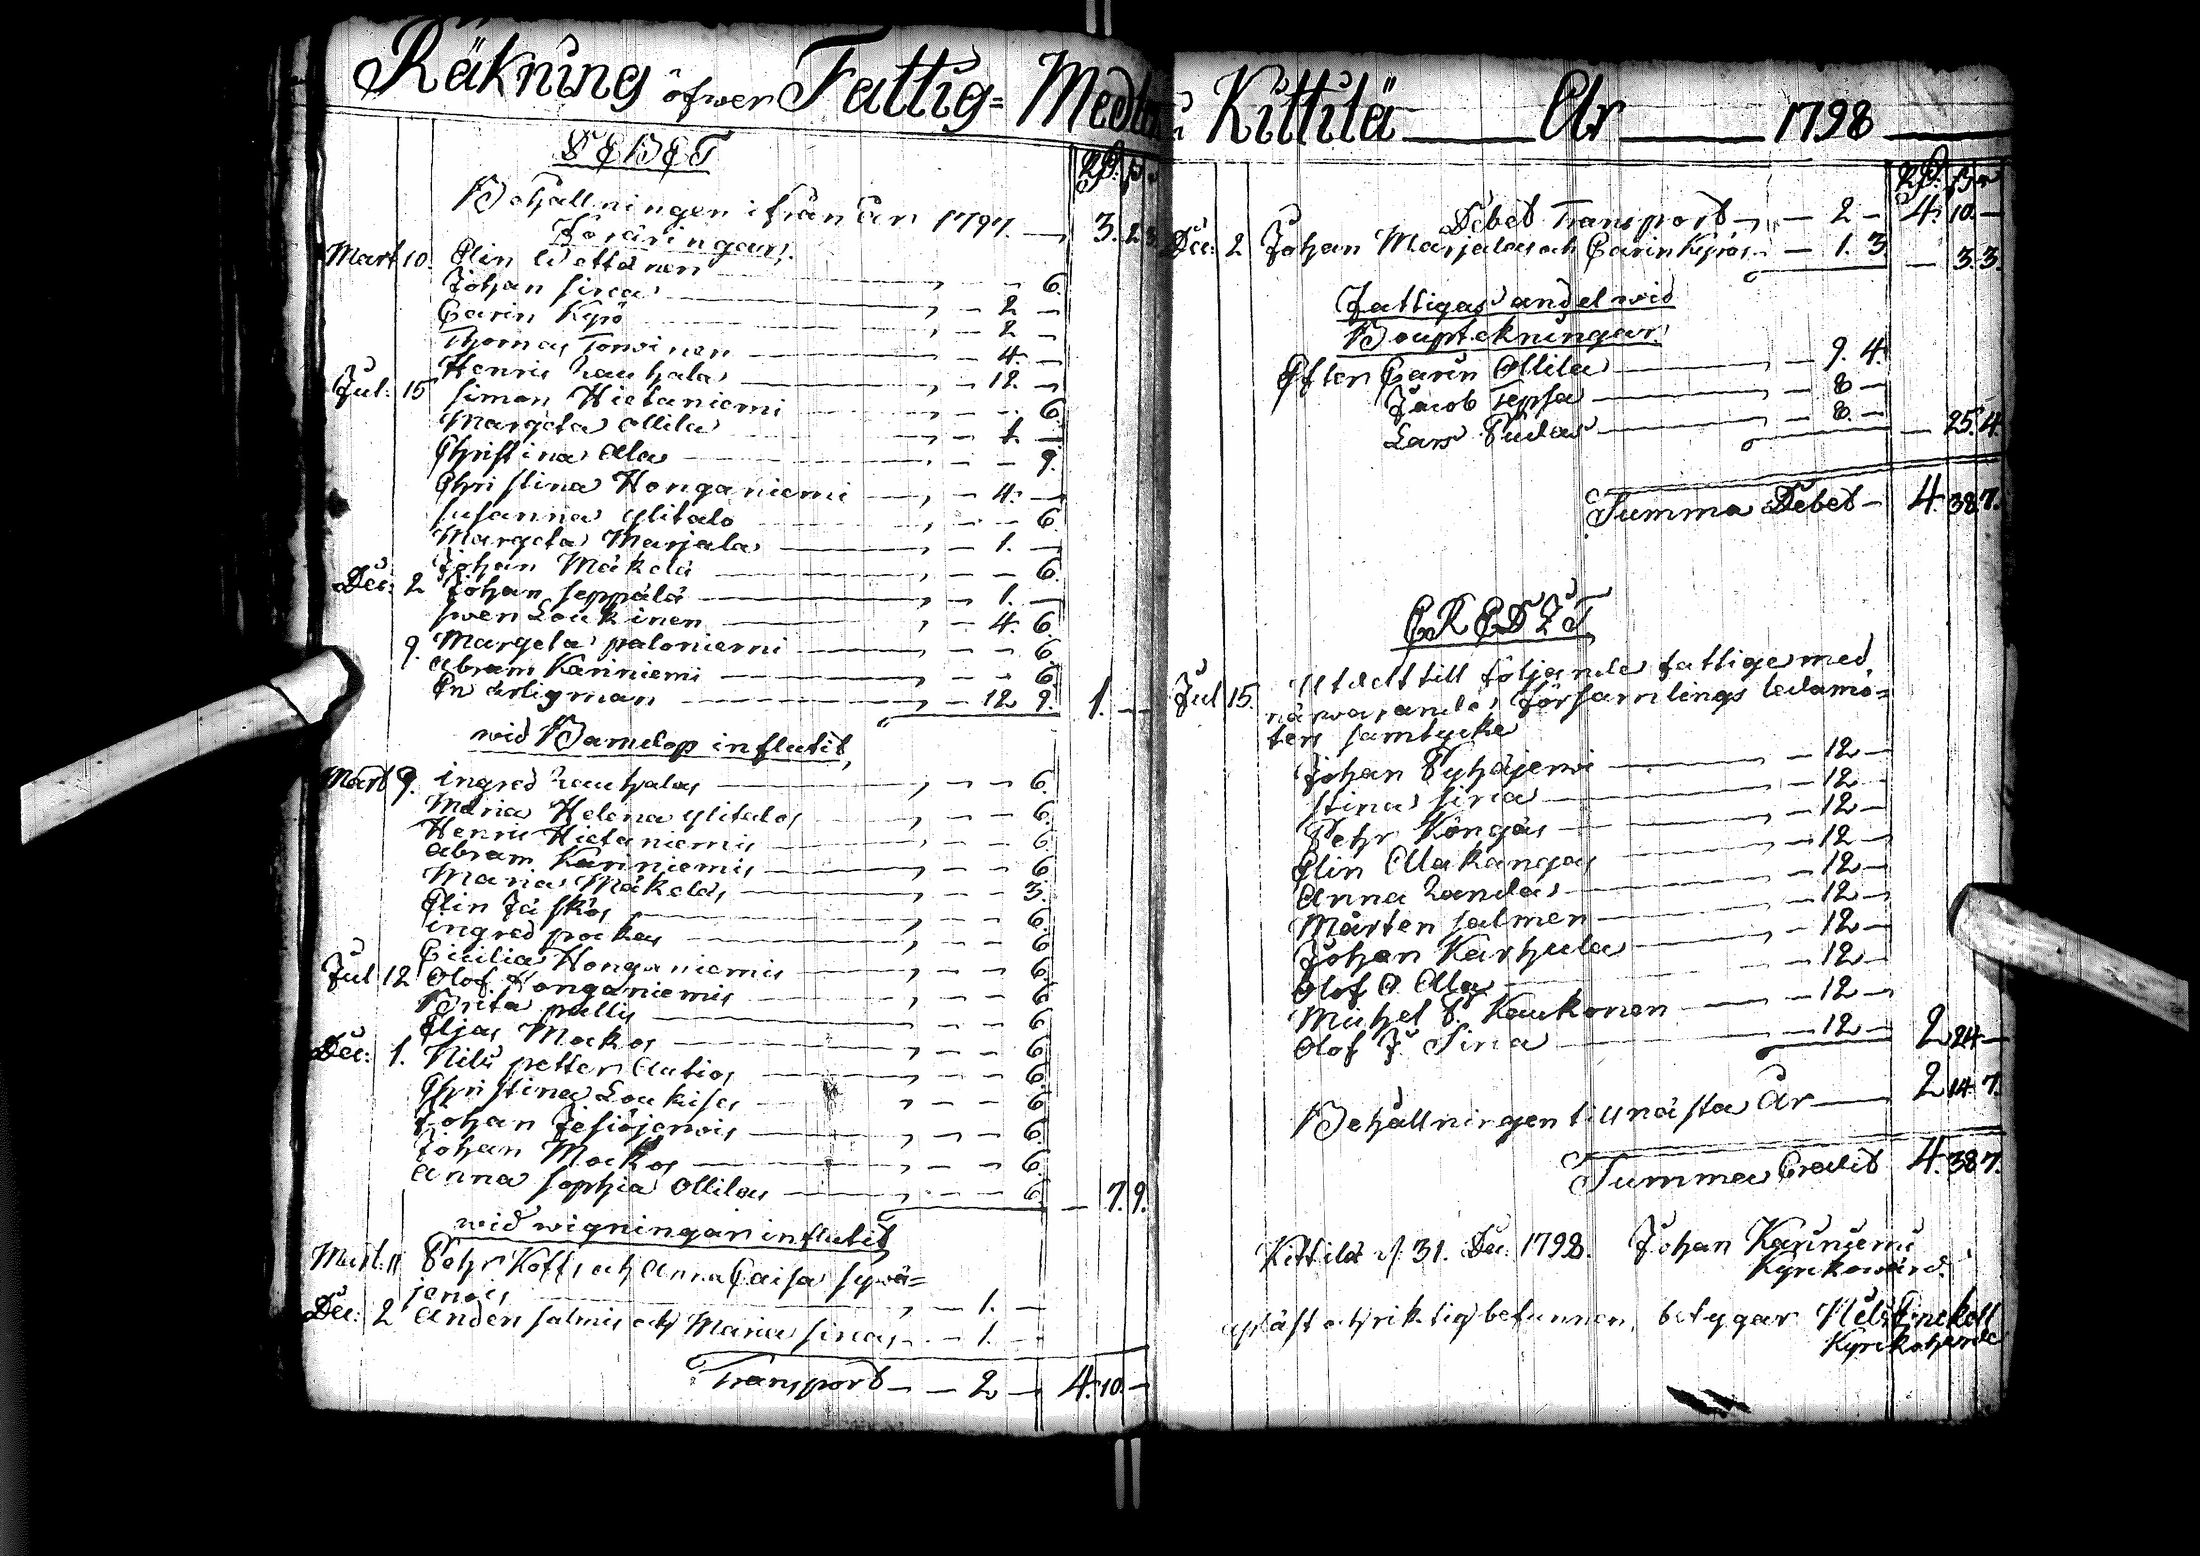 Räkning öfwer Fattig=Medlen
DEBET
Rd. ß.
Behållningen ifrån år 1797. — 3. 2 3
Kojäringar.
Mart 10. Elin Wettänen — 6.
Johan Sirca — 2 —
Carin Kyrö — 2 —
Thomas Torvinen — 4. —
Henric Rauhala — 12. —
Jul: 15 Simon Hietaniemi — 6.
Margeta Ollila — 1 —
Christina Ala — 9.
Christina Honganiemi — 4. —
Susanna Ylitalo — 6.
Margeta Marjala — 1. —
Johan Mäkelä — 6.
Dec: 2 Johan Seppälä — 1. —
Swen Loukinen — 4. 6.
9. Margeta paloniemi — 6.
Abram Kariniemi — 6.
En ärlig man — 12 9. 1. —
wid Barndop influtit,
Mart 9. Ingred Rauhalas — 6.
Maria Helena Ylitalos — 6.
Henric Hietaniemis — 6.
Abram Kariniemis — 6
Maria Mäkeläs — 3.
Elin Jäskös — 6.
Ingred pockas — 6
Cicilia Honganiemis — 6.
Jul 12 Olof Honganiemis — 6
Brita pallis — 6
Eljas Mockos — 6
Dec: 1. Nils petter Autios — 6.
Christina Loukisas — 6
Johan Jesiöjerwis — 6.
Johan Mockos — 6.
Anna Sophia Ollilas — 6 — 7. 9.
wid wigningar influtit
Mart: 11 Pehr Koffs och Anna Caisa Sywä=
jerwis — 1. —
Dec: 2 Anders Salmis och Maria Sircas — 1. —
Transport — 2 — 4. 10. —
i Kittilä — År — 1798 —
Rd. ß. r
Debet Transport — 2 — 4. 10. —
Dec: 2 Johan Marjalas och Carin Kyrös — 1. 3. — 3. 3.
Fattigas andel wid
Bouptekningar.
Efter Carin Ollila — 9. 4.
Jacob Tepsa — 8 —
Lars Pudas — 8. — — 25. 4.
Summa Debet — 4. 38. 7.
CREDIT
Jul 15. Utdelt till följande fattige med
närwarande Församlings ledamö=
ters samtycke
Johan Pyhäjerwi — 12 —
Stina Sirca — 12 —
Pehr Köngäs — 12 —
Elin Allakangas — 12 —
Anna Zanda — 12 —
Mårten Salmen — 12 —
Johan Karhula — 12 —
Olof O. Alla — 12 —
Michel P. Kaukonen — 12 —
Olof J. Sirca — 12 — 2 24 —
Behållningen till nästa År — 2 14. 7.
Summa Credit 4. 38. 7.
Kittilä d. 31. Dec: 1798. Johan Kariniemi
Kyrkowärd.
upläst och riktig befunnen, betygar Nils
Kyrkoherde